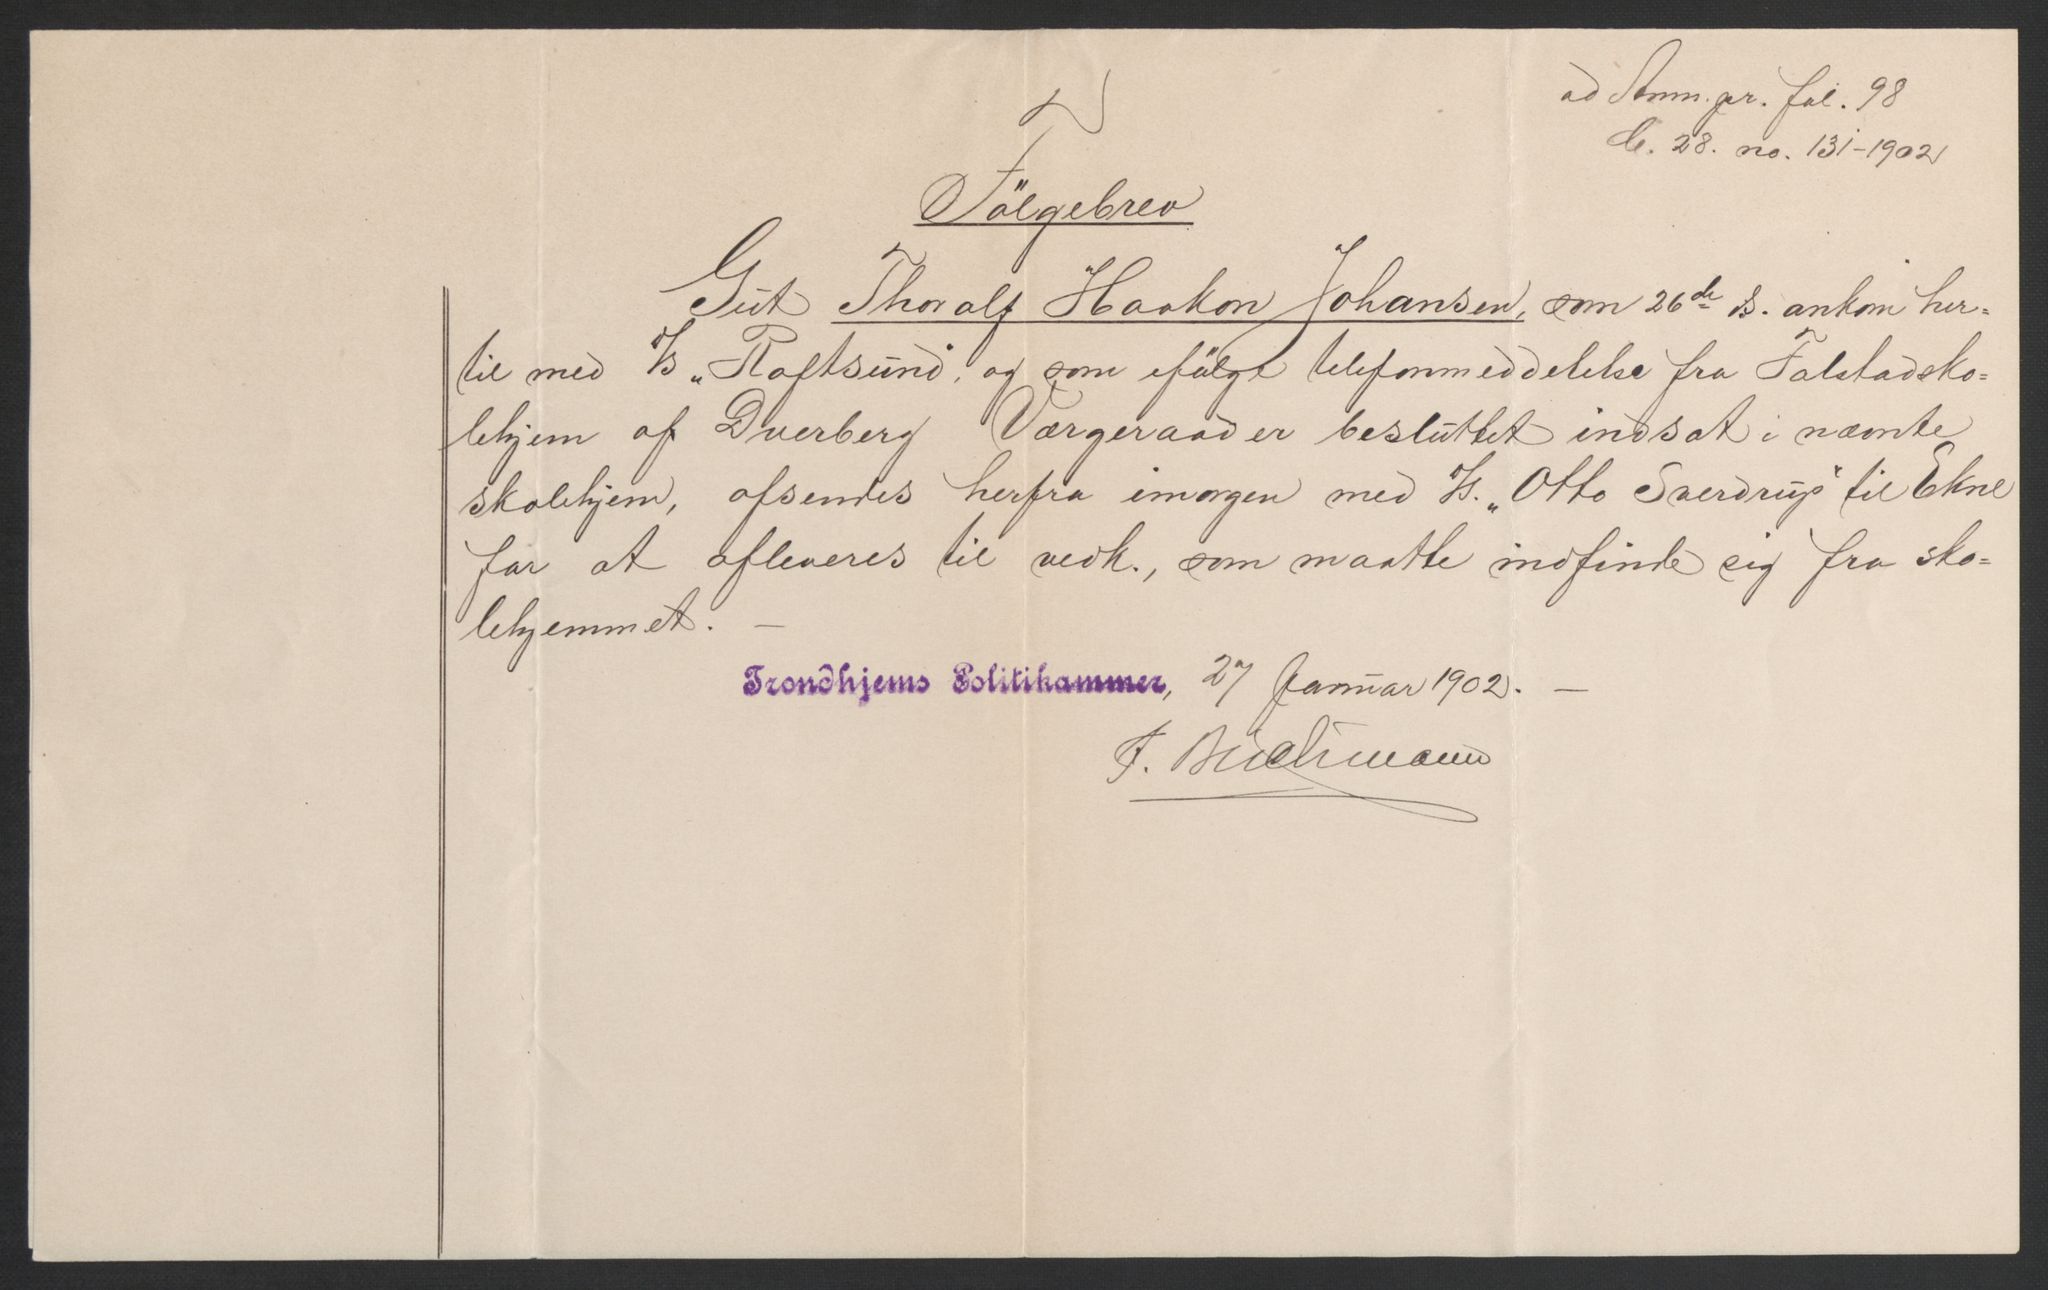 ad Anm.pr. fol. 98
C. 28. no. 131-1902
Følgebrev
Gut Thoralf Haakon Johansen, som 26de ds. ankom her=
til med D/s „Raftsund", og som ifølge telefonmeddelelse fra Falstadsko=
lehjem af Dverberg Værgeraad er besluttet indsat i nævnte
skolehjem, afsendes herfra imorgen med D/s. „Otto Sverdrup" til Ekne
for at afleveres til vedk., som maatte indfinde sig fra sko=
lehjemmet. —
Trondhjems Politikammer, 27 Januar 1902. —
F. Buchmann